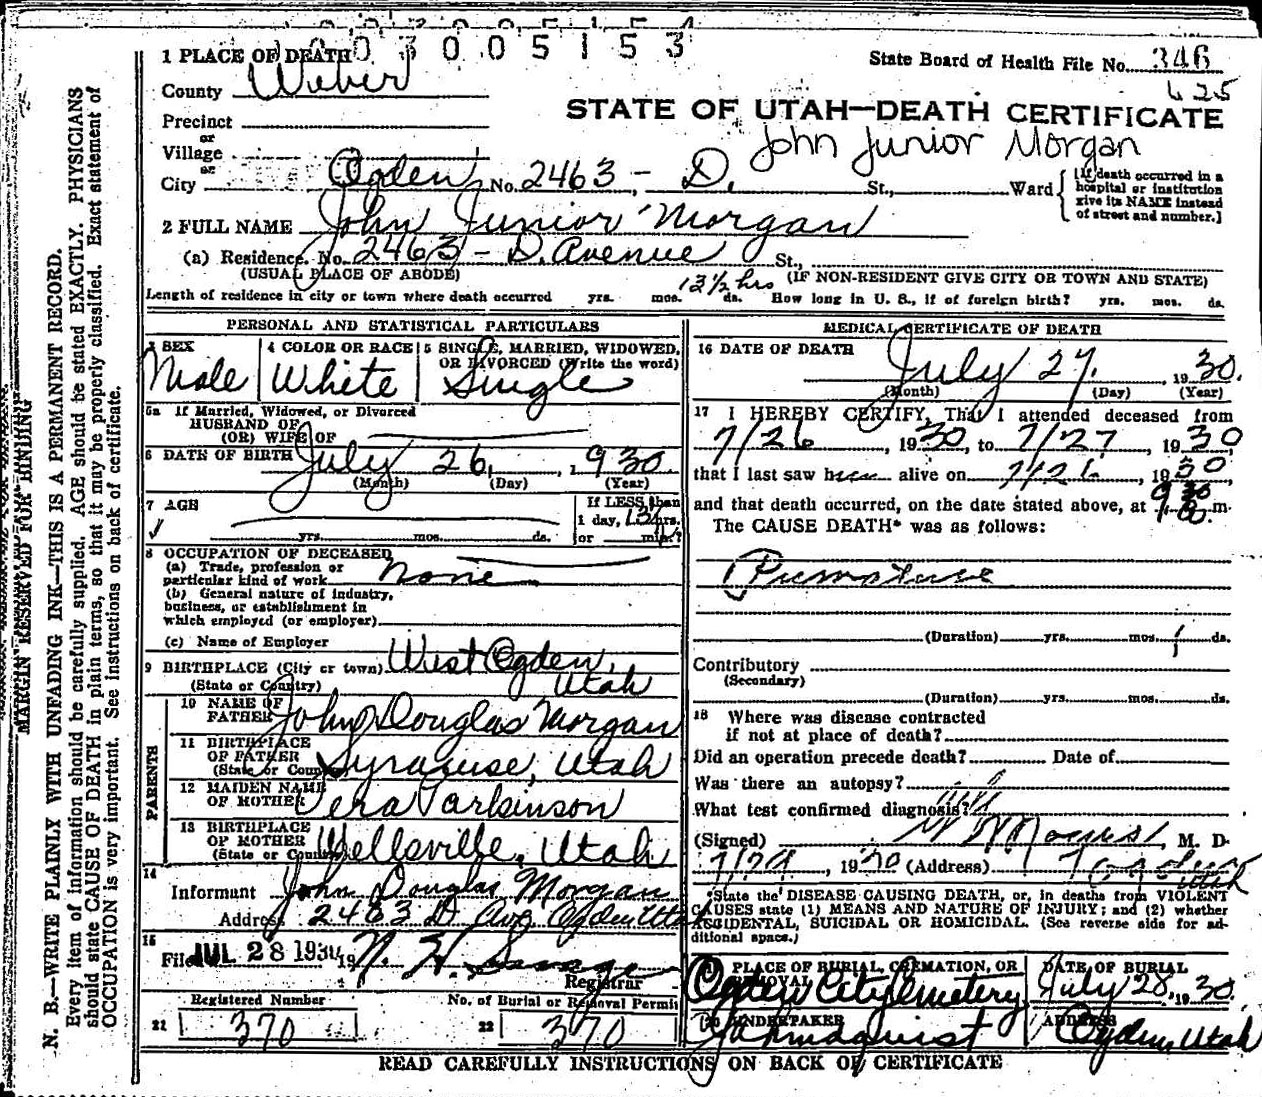 003005153
1 PLACE OF DEATH
State Board of Health File No. 346
County Weber
625
STATE OF UTAH—DEATH CERTIFICATE
Precinct
or
John Junior Morgan
Village
or
City Ogden No. 2463 - D. St., Ward
[If death occurred in a hospital or institution give its NAME instead of street and number.]
2 FULL NAME John Junior Morgan
(a) Residence. No. 2463 - D. Avenue St.,
(USUAL PLACE OF ABODE) (IF NON-RESIDENT GIVE CITY OR TOWN AND STATE)
13 1/2 hrs
Length of residence in city or town where death occurred yrs. mos. ds. How long in U. S., if of foreign birth? yrs. mos. ds.
PERSONAL AND STATISTICAL PARTICULARS
3 SEX
Male
4 COLOR OR RACE
White
5 SINGLE, MARRIED, WIDOWED,
OR DIVORCED (Write the word)
Single
5a If Married, Widowed, or Divorced
HUSBAND OF
(OR) WIFE OF
6 DATE OF BIRTH July 26, 1930
(Month) (Day) (Year)
7 AGE
yrs. mos. ds.
If LESS than
1 day, 13 1/2 hrs.
or min.?
8 OCCUPATION OF DECEASED
(a) Trade, profession or
particular kind of work none
(b) General nature of industry,
business, or establishment in
which employed (or employer)
(c) Name of Employer
9 BIRTHPLACE (City or town) West Ogden,
(State or Country) Utah
PARENTS
10 NAME OF
FATHER John Douglas Morgan
11 BIRTHPLACE
OF FATHER
(State or Country) Syracuse, Utah
12 MAIDEN NAME
OF MOTHER Vera Parkinson
13 BIRTHPLACE
OF MOTHER
(State or Country) Wellsville, Utah
14
Informant John Douglas Morgan
Address 2463 D. Ave Ogden Utah
15
Filed JUL 28 1930 19 N. H. Savage
Registrar
Registered Number
21 370
No. of Burial or Removal Permit
22 370
MEDICAL CERTIFICATE OF DEATH
16 DATE OF DEATH
July 27, 1930.
(Month) (Day) (Year)
17 I HEREBY CERTIFY, That I attended deceased from
7/26, 1930, to 7/27, 1930,
that I last saw him alive on 7/26, 1930
and that death occurred, on the date stated above, at 9 30 m.
The CAUSE DEATH* was as follows:
Premature
(Duration) yrs. mos. 1 ds.
Contributory
(Secondary)
(Duration) yrs. mos. ds.
18 Where was disease contracted
if not at place of death?
Did an operation precede death? Date of
Was there an autopsy?
What test confirmed diagnosis?
(Signed) M. D.
7/29, 1930 (Address) Ogden
Utah
*State the DISEASE CAUSING DEATH, or, in deaths from VIOLENT
CAUSES state (1) MEANS AND NATURE OF INJURY; and (2) whether
ACCIDENTAL, SUICIDAL OR HOMICIDAL. (See reverse side for ad-
ditional space.)
19 PLACE OF BURIAL, CREMATION, OR
REMOVAL
Ogden City Cemetery
DATE OF BURIAL
July 28, 1930.
20 UNDERTAKER
Lindquist
ADDRESS
Ogden, Utah
READ CAREFULLY INSTRUCTIONS ON BACK OF CERTIFICATE
MARGIN RESERVED FOR BINDING
N. B.—WRITE PLAINLY WITH UNFADING INK—THIS IS A PERMANENT RECORD.
Every item of information should be carefully supplied. AGE should be stated EXACTLY. PHYSICIANS
should state CAUSE OF DEATH in plain terms, so that it may be properly classified. Exact statement of
OCCUPATION is very important. See instructions on back of certificate.